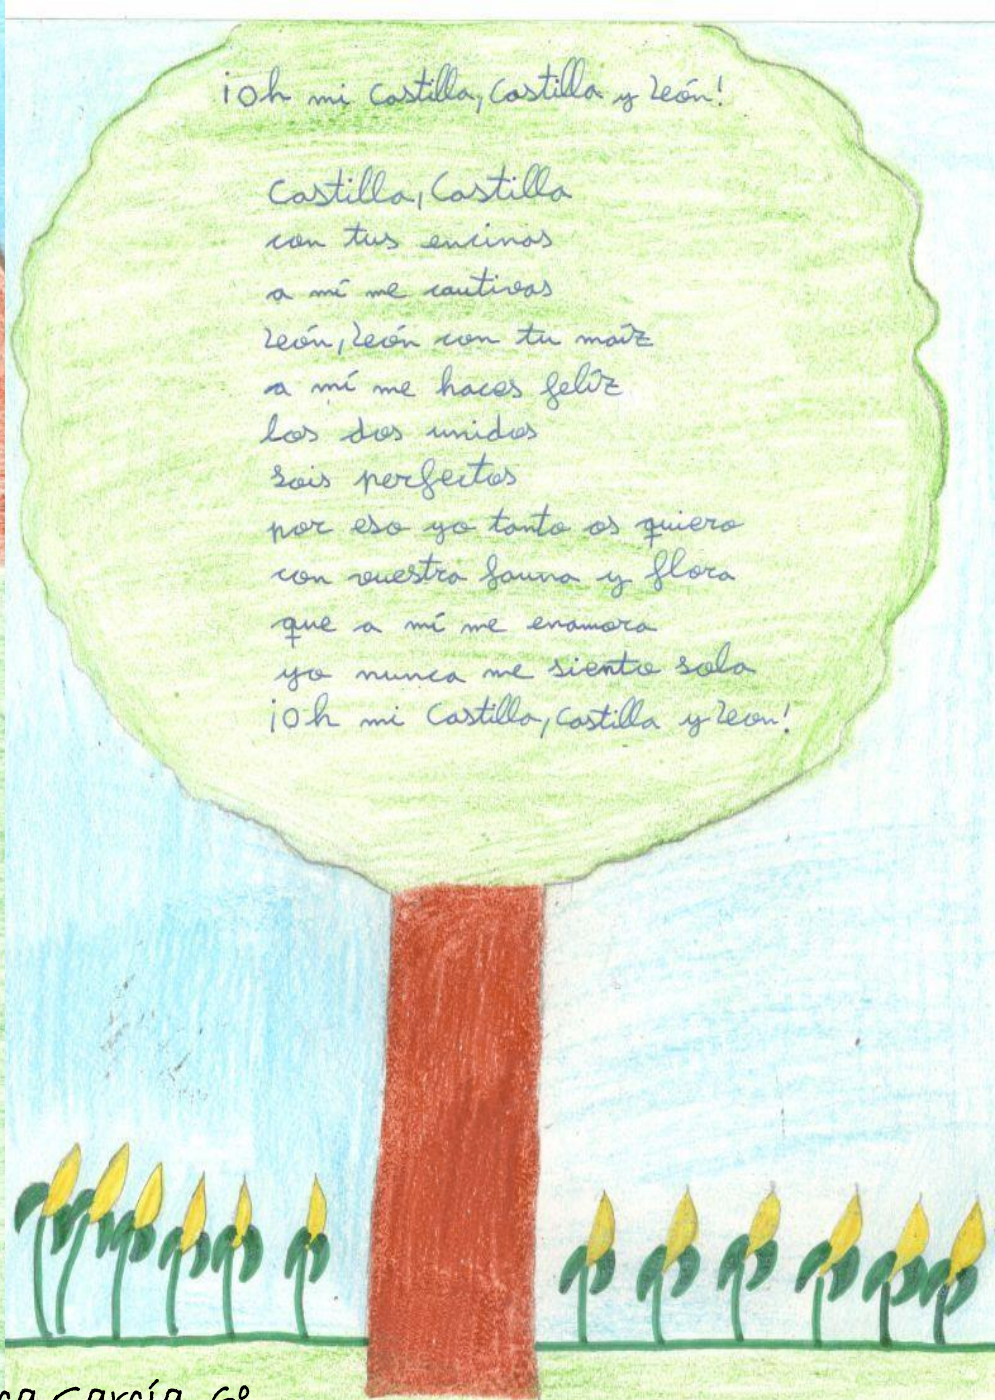 ¡Oh mi Castilla, Castilla y León!
Castilla, Castilla
con tus encinas
a mí me cautivas
León, León con tu maíz
a mí me haces felíz
los dos unidos
sois perfectos
por eso yo tanto os quiero
con vuestra fauna y flora
que a mí me enamora
yo nunca me siento sola
¡Oh mi Castilla, Castilla y León!
García 6º